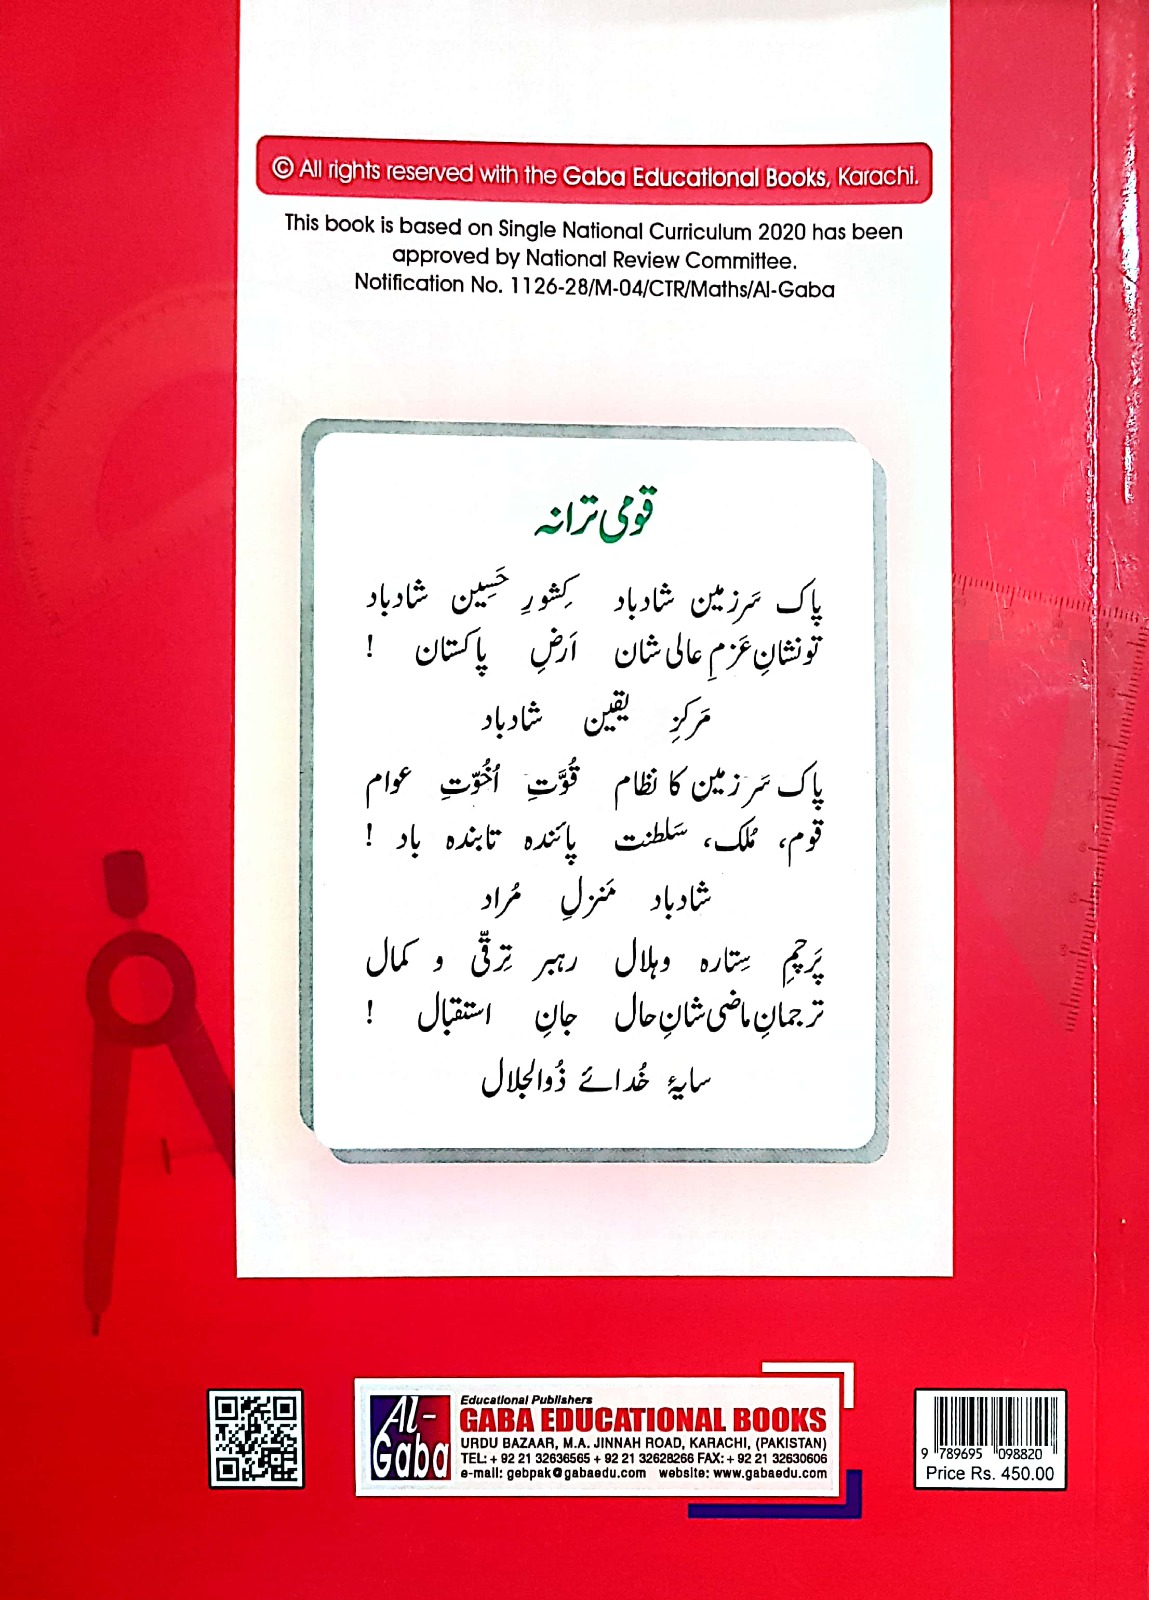 © All rights reserved with the Gaba Educational Books, Karachi.
This book is based on Single National Curriculum 2020 has been
approved by National Review Committee.
Notification No. 1126-28/M-04/CTR/Maths/Al-Gaba
قومی ترانہ
پاک سَرزمین شادباد کِشورِ حَسِین شادباد
تو نشانِ عَزمِ عالی شان اَرضِ پاکستان !
مَرکزِ یقین شادباد
پاک سَرزمین کا نظام قُوَّتِ اُخُوّتِ عوام
قوم، مُلک، سَلطنت پائندہ تابندہ باد !
شادباد مَنزلِ مُراد
پَرچمِ سِتارہ وہلال رہبر تِرقّی و کمال
ترجمانِ ماضی شانِ حال جانِ استقبال !
سایۂ خُدائے ذُوالجلال
Al-Gaba
Educational Publishers
GABA EDUCATIONAL BOOKS
URDU BAZAAR, M.A. JINNAH ROAD, KARACHI, (PAKISTAN)
TEL: + 92 21 32636565 + 92 21 32628266 FAX: + 92 21 32630606
e-mail: gebpak@gabaedu.com website: www.gabaedu.com
9 789695 098820
Price Rs. 450.00